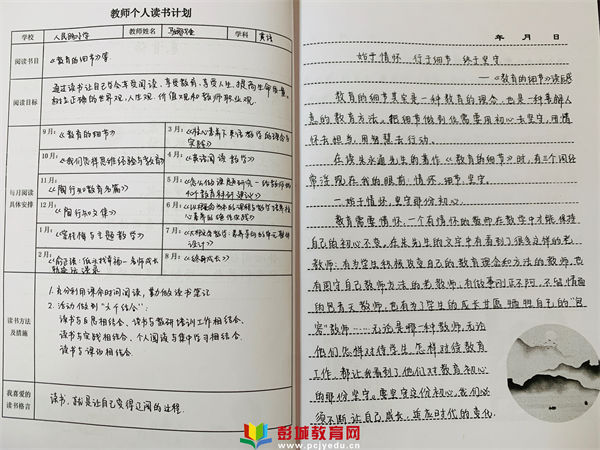 教师个人读书计划
学校 人民路小学 教师姓名 学科 英语
阅读书目 《教育的细节》等
阅读目标 通过读书让自己学会享受阅读、享受教育、享受人生、提高生命质量。
树立正确的世界观、人生观、价值观和教师职业观。
与月阅读
具体安排
9月:《教育的细节》
3月:《核心素养下英语教学的理念与
实践》
10月:《我们怎样思维 经验与教育》
4月:《英语阅读教学》
11月:
《陶行知教育名篇》
12月:
《陶行知文集》
1月:
《学校悔与主题教学》
2月:
8月:《终身成长》
读书方法
及措施
1. 充分利用课余时间阅读,勤做读书笔记
2. 活动做到"六个结合":
读书与反思相结合、读书与教研培训工作相结合、
读书与实践相结合、个人阅读与集中学习相结合、
读书与课改相结合
我喜爱的
读书格言
读书,就是让自己变得辽阔的过程。
年 月 日
始于情怀 行于细节 终于坚守
——《教育的细节》读后感
教育的细节其实是一种教育的理念,也是一种善解人
意的教育方法。把细节做到位需要用初心去坚守,用情
怀去担当,用智慧去行动。
在读朱永通先生的著作《教育的细节》时,有三个词经
常浮现在我的眼前:情怀、细节、坚守。
一、始于情怀,坚守那份初心
教育需要情怀,一个有情怀的教师在教学中才能保持
自己的初心不变。在朱先生的文字中有看到了很多这样的老
教师:有为学生积极改变自己的教育理念和方法的教师,也
有固守自己教师方法的老教师,有做事刚正不阿、不留情面
的思青天教师,也有为了学生的成长甘愿牺牲自己的"包
容"教师……无论是哪一种教师,无论
他们怎样对待学生、怎样对待教育
工作,都让我看到了他们对教育初心
的那份坚守。要坚守这份初心,我们必
须不断让自己成长,适应时代的变化。
彭城教育网
www.pcjyedu.cn